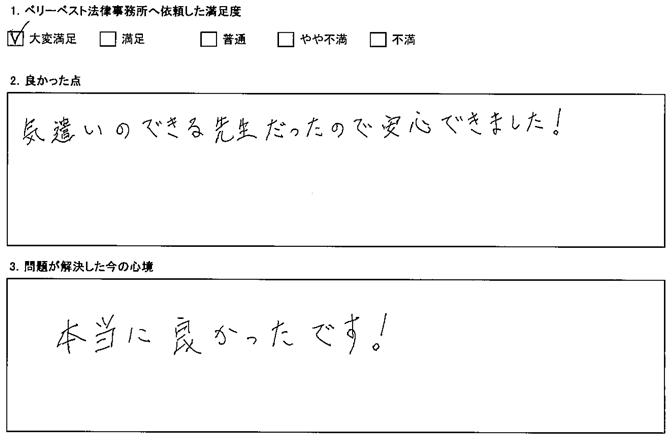 1. ベリーベスト法律事務所へ依頼した満足度
☑ 大変満足 □ 満足 □ 普通 □ やや不満 □ 不満
2. 良かった点
気遣いのできる先生だったので安心できました!
3. 問題が解決した今の心境
本当に良かったです!